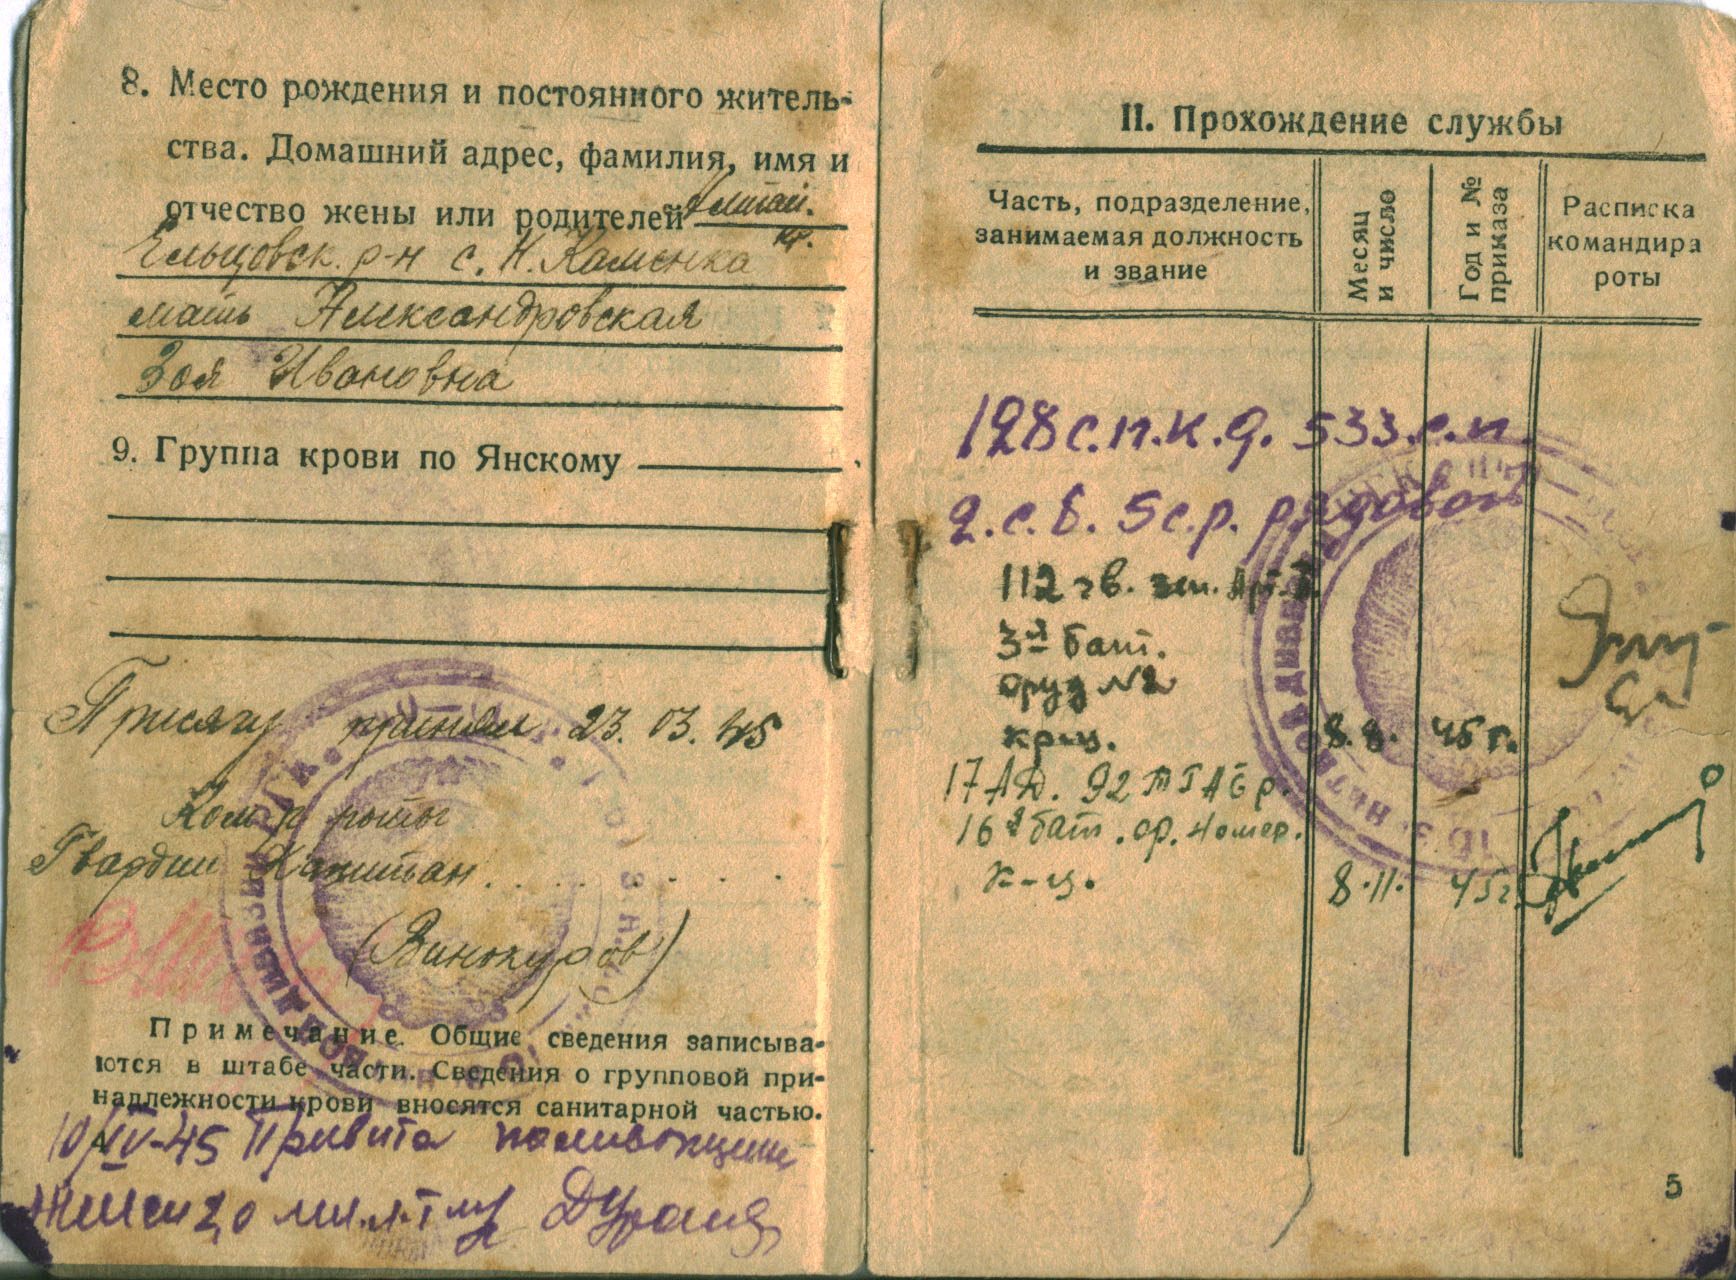 8. Место рождения и постоянного житель-
ства. Домашний адрес, фамилия, имя и
отчество жены или родителей Алтай.
кр.
Ельцовск. р-н с. Н. Каменка
мать Александровская
Зоя Ивановна
9. Группа крови по Янскому
Присягу принял 23. 03. 45
Ком-р роты
Гвардии Капитан
(Винокуров)
Примечание. Общие сведения записыва-
ются в штабе части. Сведения о групповой при-
надлежности крови вносятся санитарной частью.
10/IV-45 Привита поливакцина
II. Прохождение службы
Часть, подразделение, занимаемая должность и звание
Месяц и число
Год и № приказа
Расписка командира роты
128 с.п.к.д. 533 с.п.
2.с.б. 5 с.р. рядовой
112 гв. зен. Арт. П.
3-я бат.
оруд №2
кр-ц. 8.8. 45 г.
17 АД. 92 ТГАБр.
16я бат. ор. номер.
к-ц. 8.11. 45 г.
5